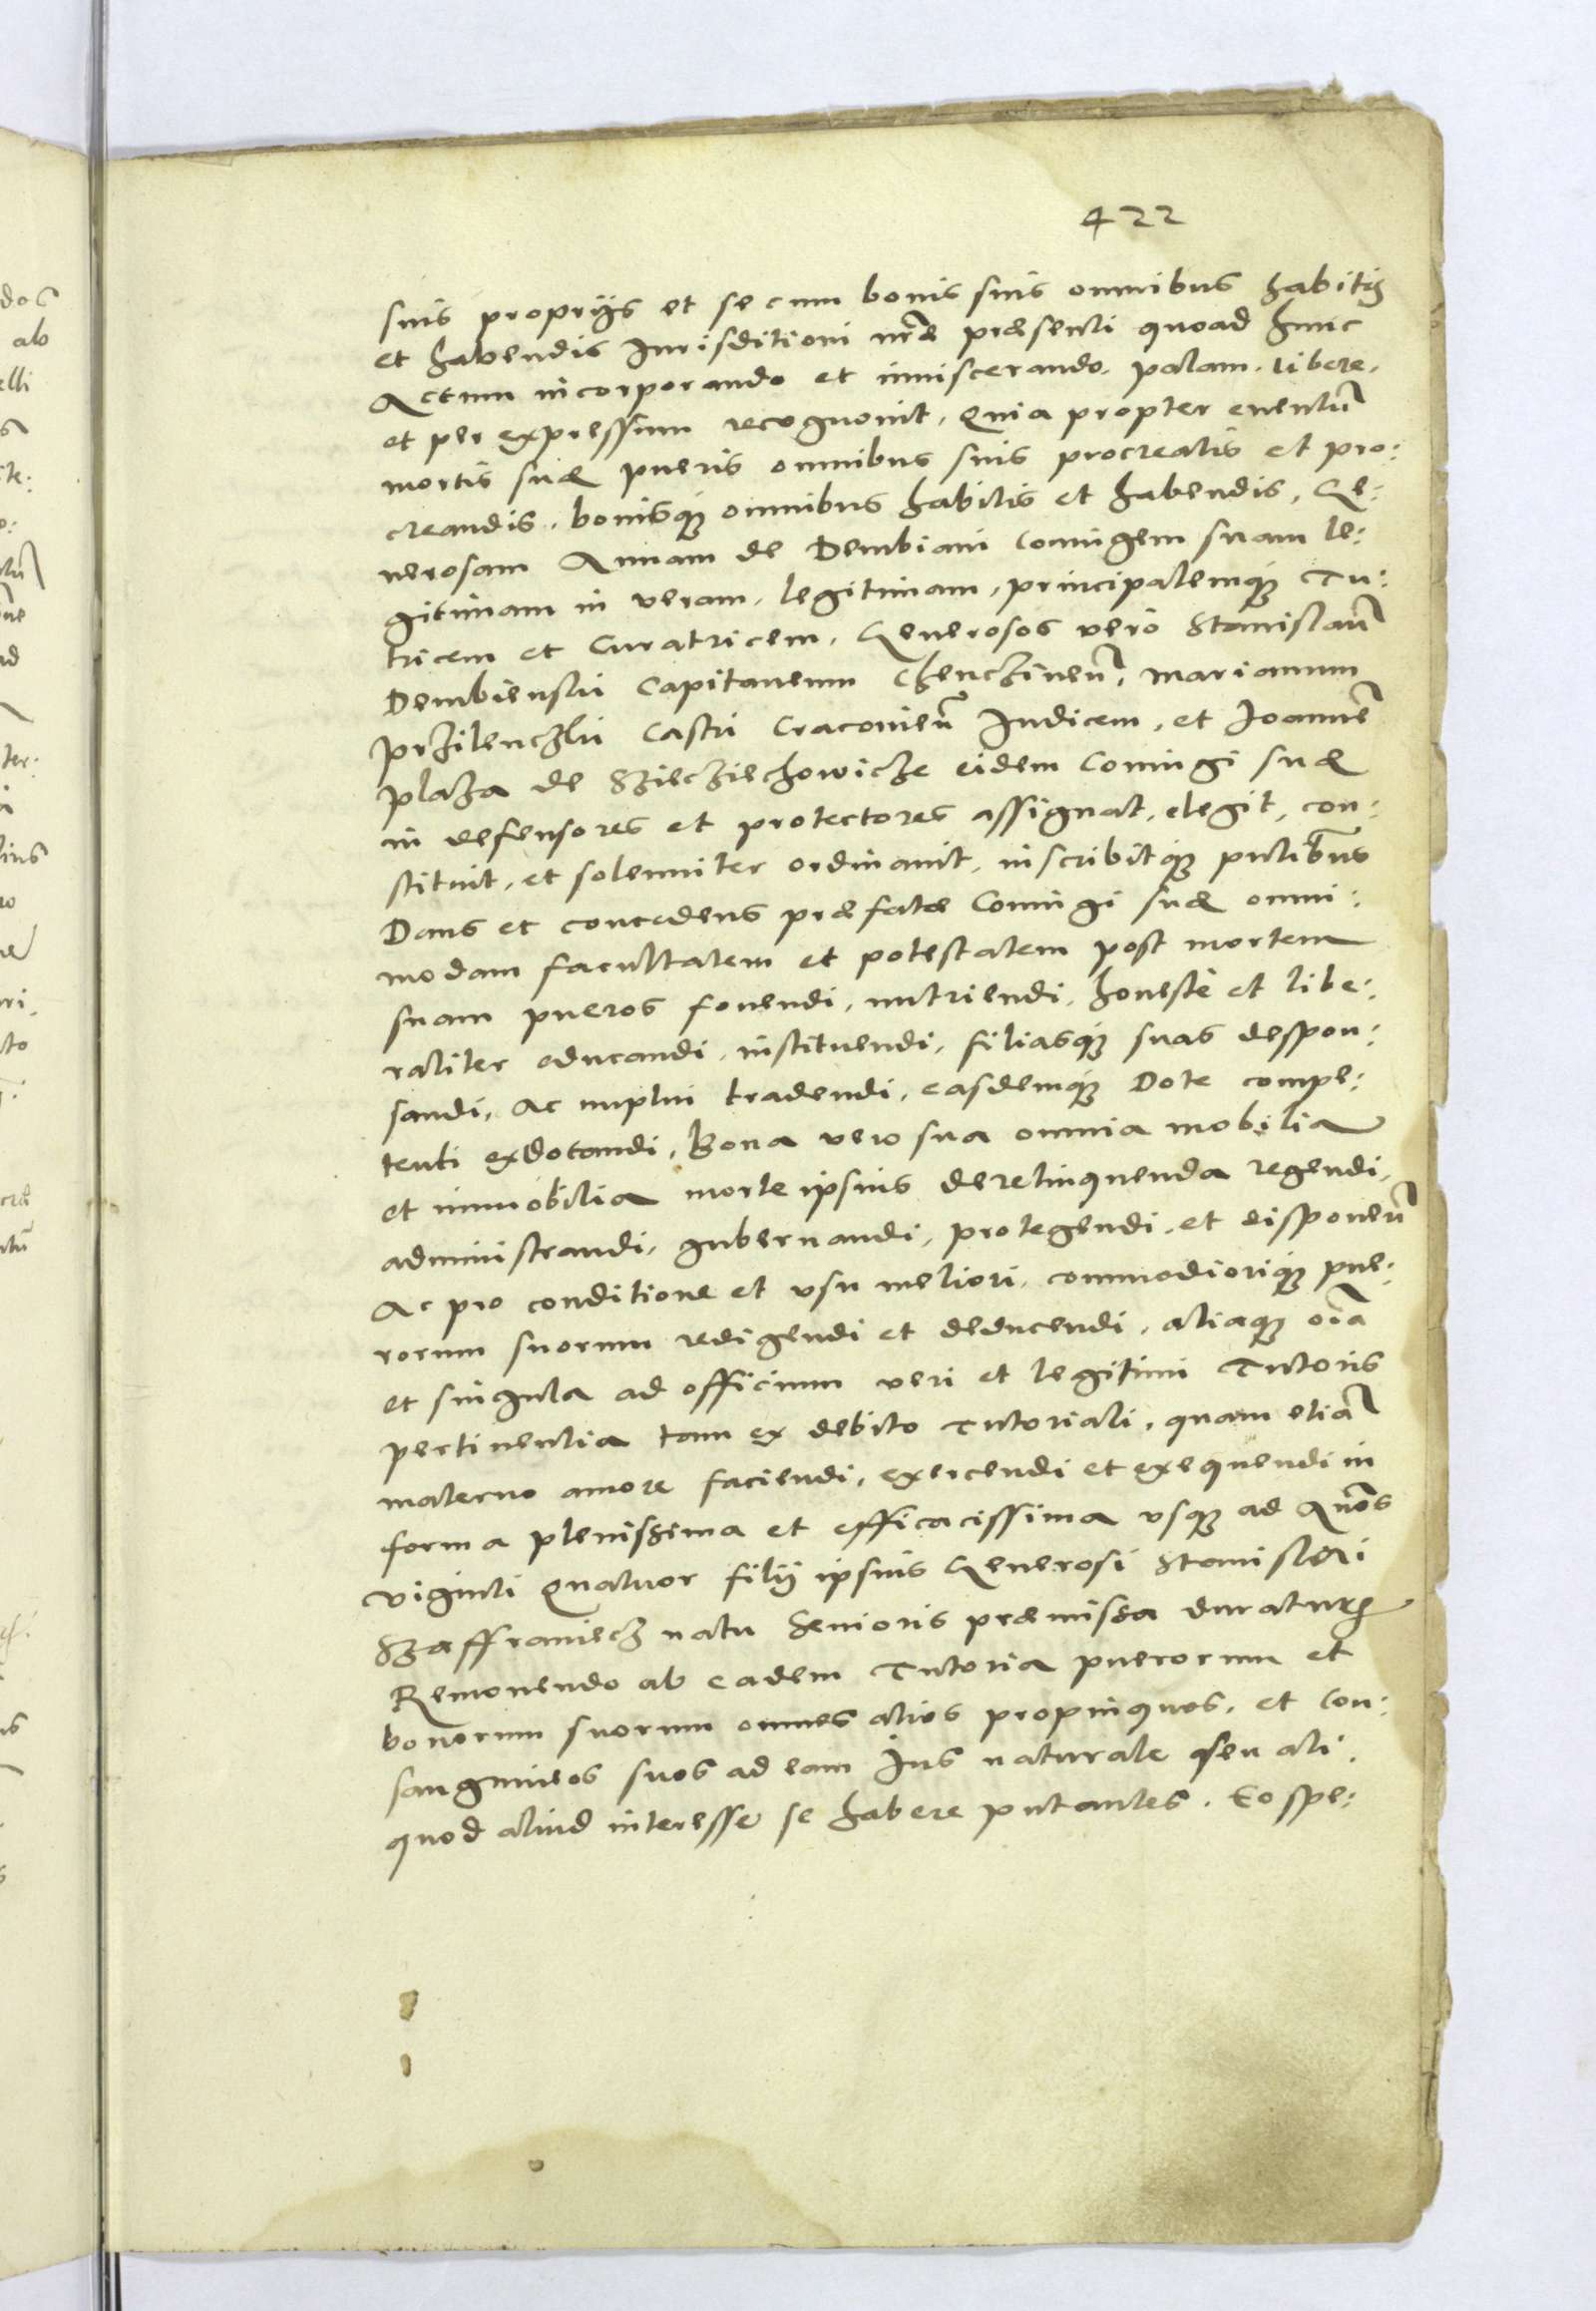 422
suis proprijs et se cum bonis suis omnibus habitis
et habendis Jurisditioni nr̃æ præsenti quoad hunc
Actum incorporando et inuiscerando, palam, libere,
et per expressum recognouit, Quia propter euentũ
mortis suæ pueris omnibus suis procreatis et pro:
creandis, bonisq; omnibus habitis et habendis, Ge:
nerosam Annam de Dembiani Coniugem suam le:
gitimam in veram, legitimam, principalemq; Tu:
tricem et Curatricem, Generosos vero Stanislaũ
Dembienski Capitaneum Chenczineñ, Marianum
Przilenczki Castri Cracovieñ Judicem, et Joannẽ
Plaza de Sziecziechowicze eidem Coniugi suæ
in defensores et protectores assignat, elegit, con:
stituit, et solenniter ordinauit, inscribitq; pn̄tibus
Dans et concedens præfatæ Coniugi suæ omni:
modam facultatem et potestatem post mortem
suam pueros fouendi, nutriendi, honestè et libe:
raliter educandi, instituendi, filiasq; suas despon:
sandi, Ac nuptui tradendi, easdemq; Dote compe:
tenti exdotandi, Bona vero sua omnia mobilia
et immobilia morte ipsius derelinquenda regendi,
administrandi, gubernandi, protegendi, et disponeñ
Ac pro conditione et vsu meliori, commodioriq; pue:
rorum suorum redigendi et deducendi, aliaq; oĩa
et singula ad officium veri et legitimi Tutoris
pertinentia tam ex debito Tutoriali, quam etiã
materno amore faciendi, exercendi et exequendi in
forma plenissima et efficacissima vsq; ad Annos
viginti Quatuor filij ipsius Generosi Stanislai
Szaffraniecz natu Senioris præmissa duraturam
Remouendo ab eadem Tutoria puerorum et
bonorum suorum omnes alios propinquos, et Con:
sanguineos suos ad eam Jus naturale seu ali:
quod aliud interesse se habere putantes. Eo spe: